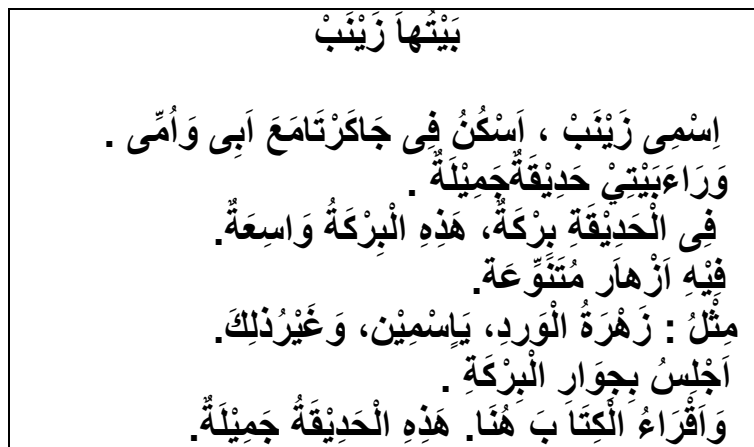 بَيْتُهاَ زَيْنَبْ
اِسْمِى زَيْنَبْ ، اَسْكُنُ فِى جَاكَرْتَامَعَ اَبِى وَاُمِّى .
وَرَاءَبَيْتِيْ حَدِيْقَةٌجَمِيْلَةٌ .
فِى الْحَدِيْقَةِ بِرْكَةٌ، هَذِهِ الْبِرْكَةُ وَاسِعَةٌ.
فِيْهِ اَزْهاَر مُتَنَوِّعَة.
مِثْلُ : زَهْرَةُ الْوَردِ، يَاِسْمِيْن، وَغَيْرُذلِكَ.
اَجْلِسُ بِجِوَارِ الْبِرْكَةِ .
وَاَقْرَاءُ الْكِتَا بَ هُنَا. هَذِهِ الْحَدِيْقَةُ جَمِيْلَةٌ.